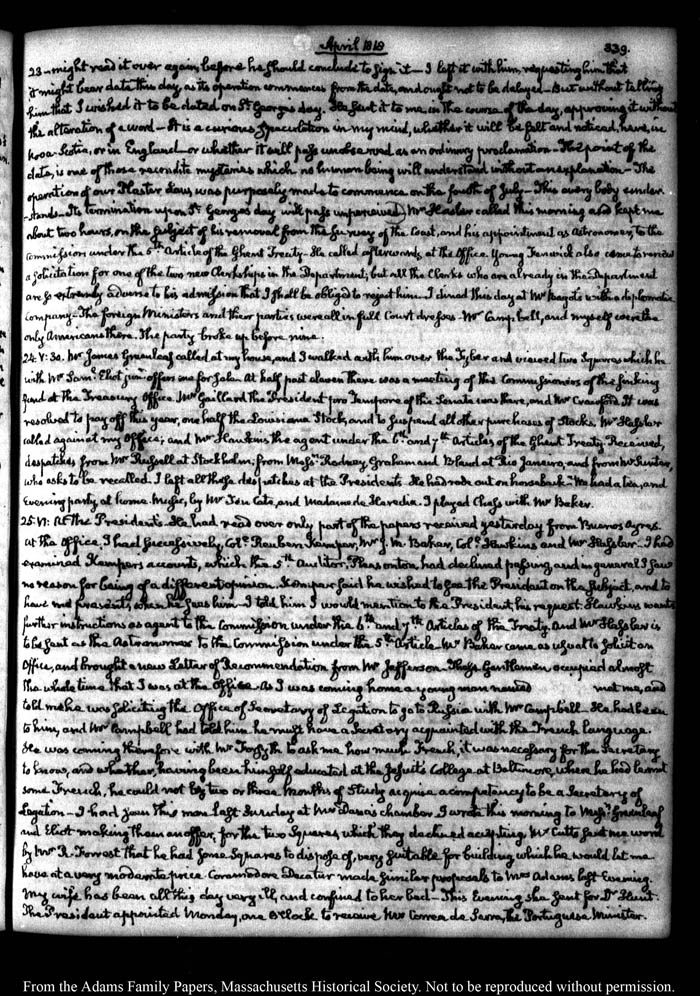 April 1818
339.
23 – might read it over again, before he should conclude to sign it – I left it with him, requesting him that
it might bear date this day, as its operation commences from the date, and ought not to be delayed – But without telling
him that I wished it to be dated on St. Georges day. He sent it to me, in the course of the day, approving it without
the alteration of a word – It is a curious speculation in my mind, whether it will be felt and noticed, here, in
Nova-Scotia, or in England – or whether it will pass unobserved as an ordinary proclamation – The point of the
date, is one of those recondite mysteries which no human being will understand without an explanation – The
operation of our Plaster Laws was purposely made to commence on the fourth of July – This every body under-
-stands – Its termination upon St. Georges day will pass unperceived. Mr Hassler called this morning and kept me
about two hours, on the subject of his removal from the Survey of the Coast, and his appointment as Astronomer, to the
Commission under the 5th Article of the Ghent Treaty – He called afterwards at the Office. Young Fenwick also came to renew
a solicitation for one of the two new Clerkships in the Department; but all the Clerks who are already in the Department
are so extremely adverse to his admission that I shall be obliged to reject him. I dined this day at Mr Bagot's with a diplomatic
company – The foreign Ministers and their parties were all in full Court dresses – Mr Campbell, and myself were the
only Americans there. The party broke up before nine.
24. V: 30. Mr James Greenleaf called at my house, and I walked with him over the Tyber and viewed two Squares which he
with Mr Saml. Eliot junr. offers me for sale. At half past eleven there was a meeting of the Commissioners of the sinking
fund at the Treasury Office. Mr Gaillard the President pro Tempore of the Senate was there, and Mr Crawford. It was
resolved to pay off this year, one half the Louisiana Stock, and to suspend all other purchases of Stocks. Mr Hassler
called again at my Office; and Mr Hawkins the agent under the 6th and 7th Articles of the Ghent Treaty. Received,
despatches from Mr Russell at Stockholm; from Messrs. Rodney Graham and Bland at Rio Janeiro, and from Mr Hunter,
who asks to be recalled. I left all these despatches at the Presidents. He had rode out on horseback – We had a tea, and
Evening party at home. Music, by Mr Ten Cate, and Madame de Heredia. I played Chess with Mr Baker.
25. VI: At the President's. He had read over only part of the papers received yesterday from Buenos Ayres.
At the Office, I had successively, Col. Reuben Kemper, Mr J. M. Baker, Col. Hawkins and Mr Hassler – I had
examined Kempers accounts, which the 5th Auditor, Pleasonton had declined passing and in general I saw
no reason for being of a different opinion. Kemper said he wished to see the President on the subject, and to
have me present, when he sees him – I told him I would mention to the President, his request. Hawkins wants
further instructions as agent to the Commission under the 6th and 7th Articles of the Treaty. And Mr Hassler is
to be sent as the Astronomer to the Commission under the 5th Article – Mr Baker came as usual to solicit an
Office, and brought a new Letter of Recommendation from Mr Jefferson. These Gentlemen occupied almost
the whole time that I was at the Office. As I was coming home a young man named met me, and
told me he was soliciting the Office of Secretary of Legation to go to Russia with Mr Campbell. He had been
to him, and Mr Campbell had told him he must have a Secretary acquainted with the French language.
He was coming therefore with Mr Forsyth to ask me, how much French, it was necessary for the Secretary
to know, and whether, having been himself educated at the Jesuit's College at Baltimore, where he had learnt
some French, he could not by two or three Months of Study acquire a competency to be a Secretary of
Legation – I had seen this man last Sunday at Mr Dana's chamber. I wrote this morning to Messrs. Greenleaf
and Eliot making them an offer, for the two Squares, which they declined accepting. Mr Cutts sent me word
by Mr R. Forrest that he had some Squares to dispose of, very suitable for building which he would let me
have at a very moderate price. Commodore Decatur made similar proposals to Mrs Adams last Evening.
My wife has been all this day very ill, and confined to her bed – This Evening she sent for Dr Hunt.
The President appointed Monday, one O'Clock to receive Mr Correa de Serra, the Portuguese Minister.
From the Adams Family Papers, Massachusetts Historical Society. Not to be reproduced without permission.